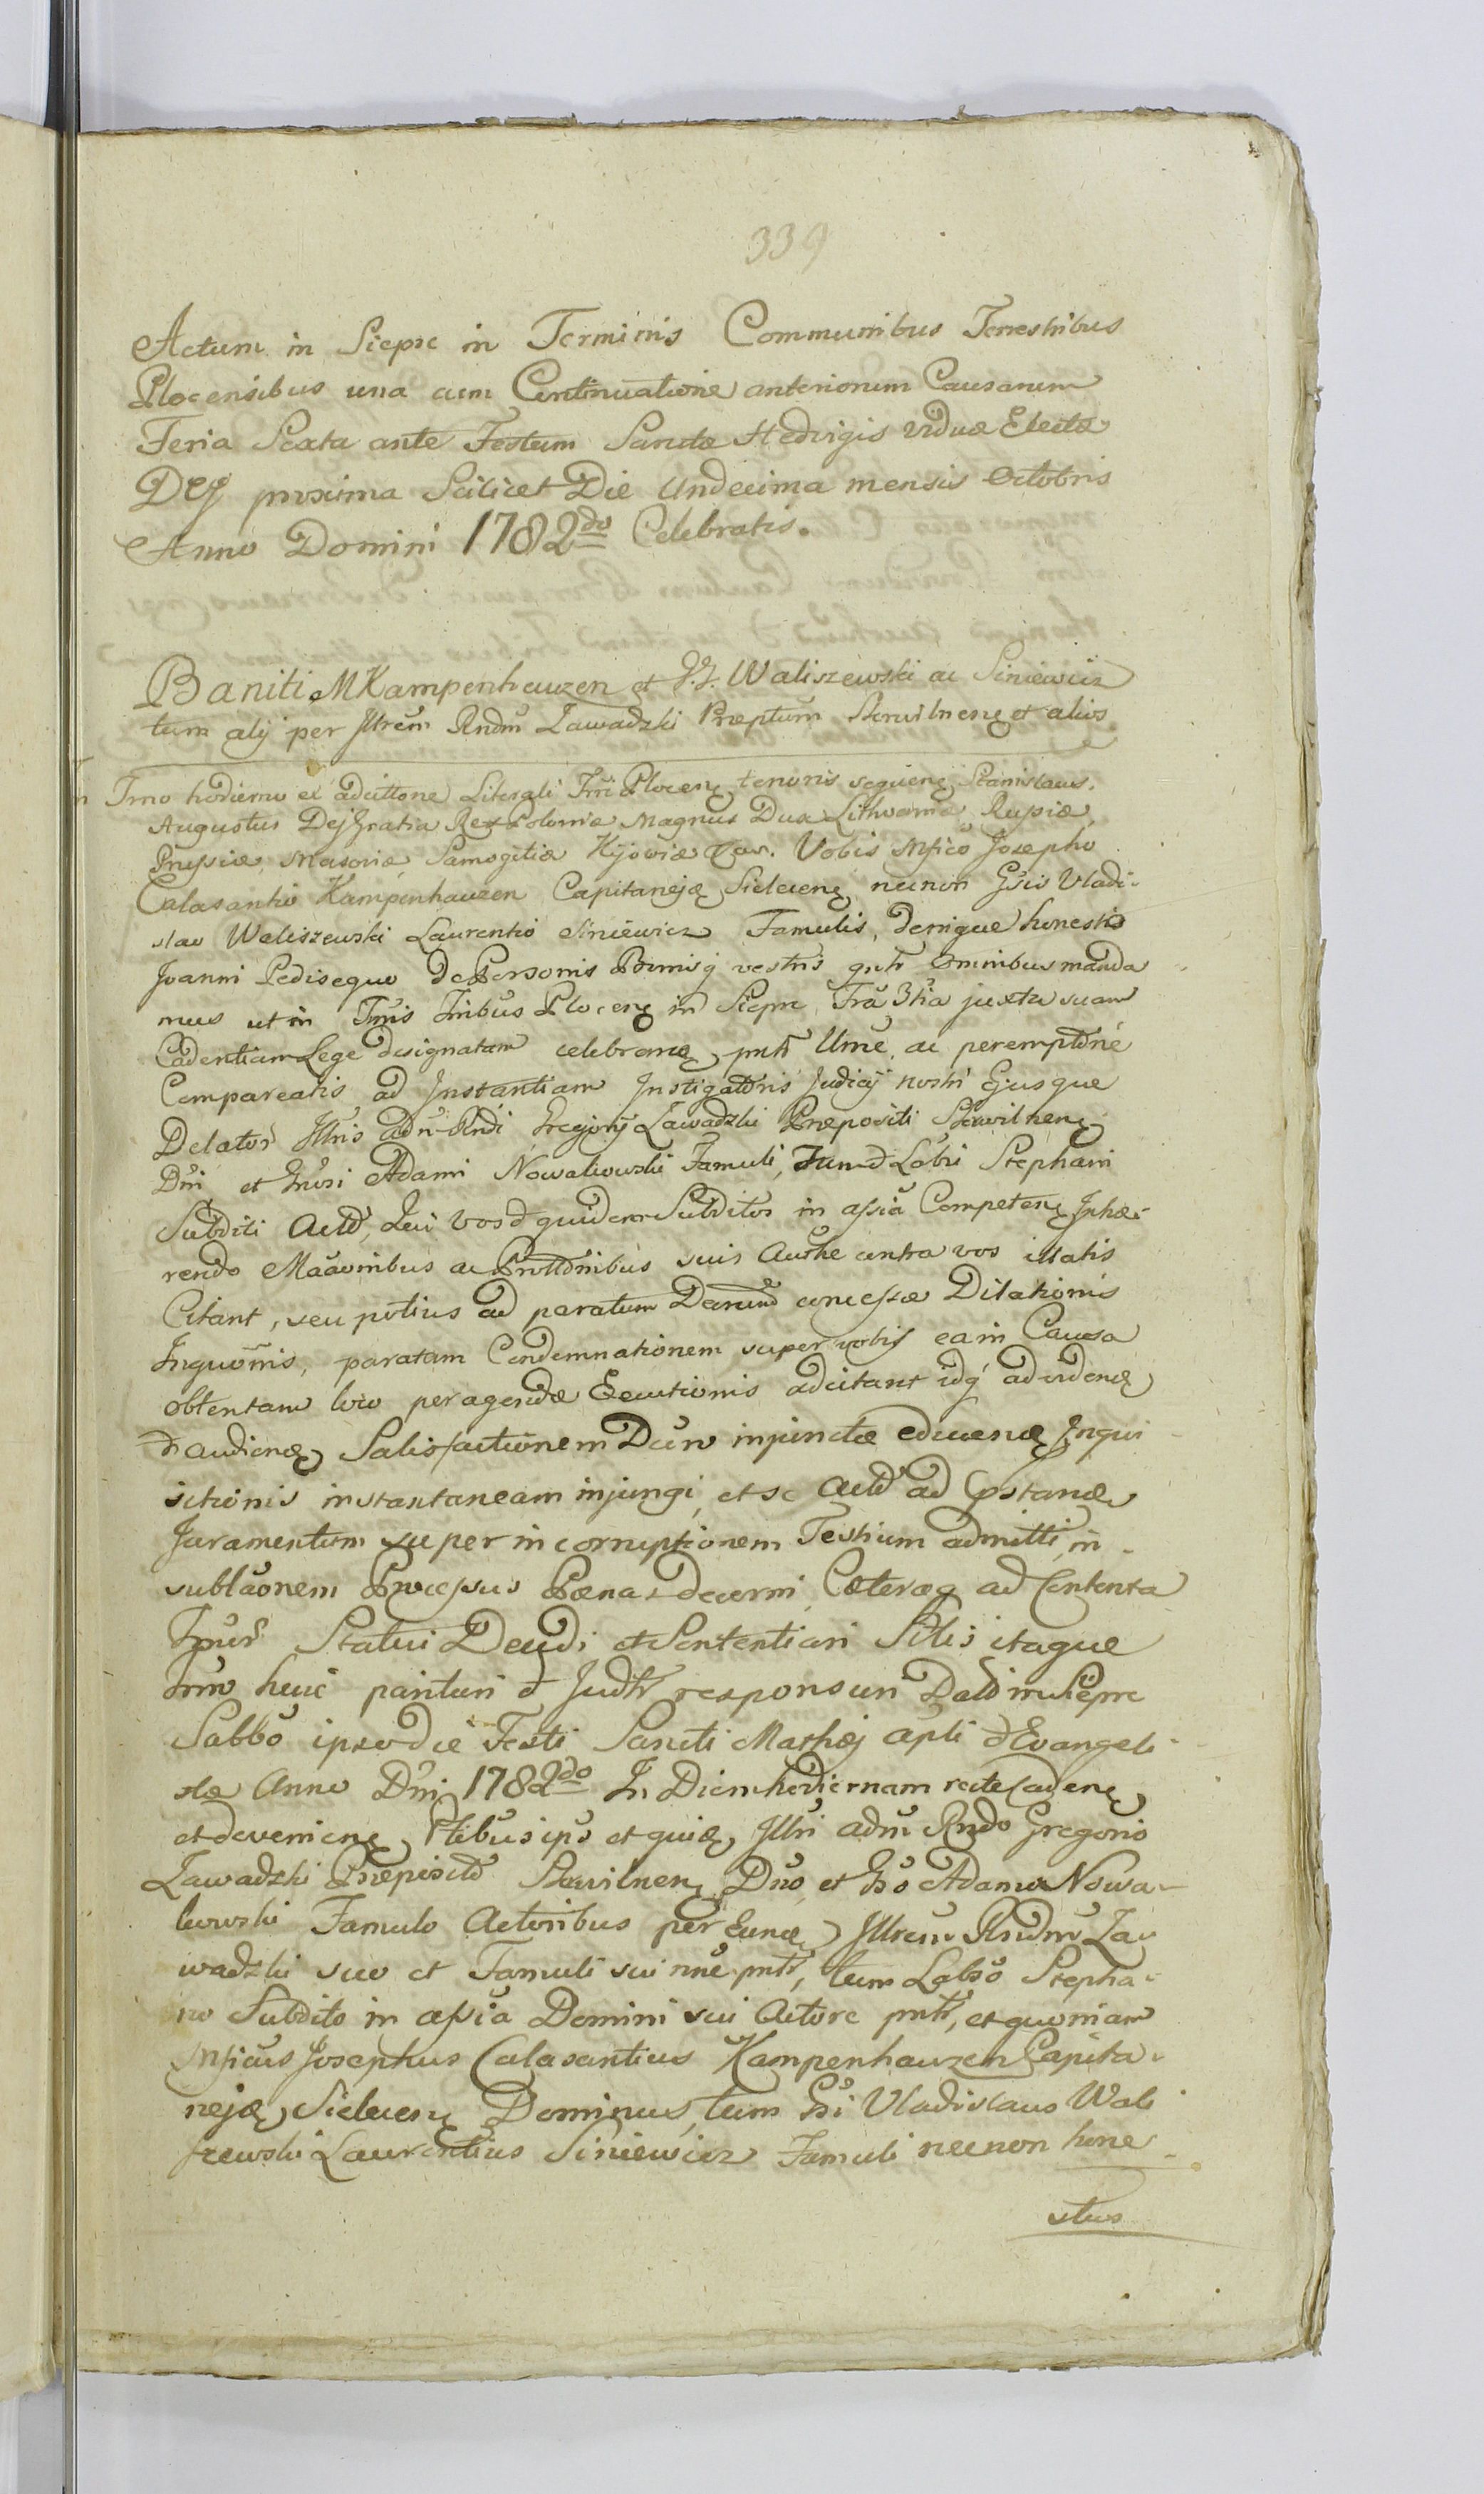 339
Actum in Siepre in Terminis Communibus Terrestribus
Plocensibus una cum Continuatione anteriorum Causarum
Feria Sexta ante Festum Sanctæ Hedvigis viduæ Electæ
DEJ proxima Scilicet Die Undecima mensis Octobris
Anno Domini 1782do Celebratis.
Baniti M Kampenhauzen et J.J. Waliszewski ac Siniewicz
tum alij per Jllrem Rndm Zawadzki Præptum Skrwilnen et alios
In Trno hodierno ex adcittone Literali Trri Plocen tenoris sequen Stanislaus
Augustus Dej Gratia Rex Poloniæ Magnus Dux Lithvaniæ Russiæ
Prussiæ Masoviæ Samogitiæ Kijoviæ Vobis Mfico Josepho
Calasantio Kampenhauzen Capitanejæ Sielecen necnon Gsis Vladi-
slao Waliszewski Laurentio Siniewicz Famulis, denique honesto
Joanni Pedisequo De Personis Bonisq vestris gntr Omnibus manda
mus ut in Tmis Tribus Plocen in Siepre Fra 3tia juxta suam
Cadentiam Lege designatam celebran pntr Ume ac peremptorie
Compareatis ad Jnstantiam Jnstigatoris Judicij nostri Ejusque
Delator Jllris adm Rndi Gregorij Zawadzki Præpositi Skrwilnen
Dni et Gnosi Adami Nowakowski Famuli, Tum Labri Stephani
Subditi Actor, Qui vos quidem Subditos in assia Competen Jnhæ-
rendo Maaonibus ac Prottonibus suis contra vos illatis
Citant, seu potius ad paratum concessæ Dilationis
Jnquonis, paratam Condemnationem super vobis ea in Causa
obtentam loco peragendæ Executionis adcitant idq ad viden
audien Satisfactionem injunctæ Jnqui
sitionis instantaneam injungi, et se Actor ad
Juramentum super incorruptionem Testium admitti in
sublaonem Processus Pænas decerni, Cæteraq ad Contenta
Statui Decidi et Sententiari Sitis itaque
Trno huic parituri Judtr responsuri Datt in Siepre
Sabbo ipso die Festi Sancti Mathæj apli Evangeli-
stæ Anno Dni 1782do Jn Diem hodiernam rite caden
et devenien Ptibus ips Jllri adm Rndo Gregorio
Zawadzki Præposito Skrwilnen Dno et Gso Adamo Nowa-
kowski Famulo Actoribus per Eund Jllrem Rndm Za-
wadzki suo et Famuli sui nne pntr, tum Labso Stepha-
no Subdito in assia Domini sui Actore pntr, et quoniam
Mficus Josephus Calasantius Kampenhauzen Capita-
nejæ Sielecen Dominus, tum Gsi Vladislaus Wali
szewski Laurentius Siniewicz Famuli necnon hone-
stus